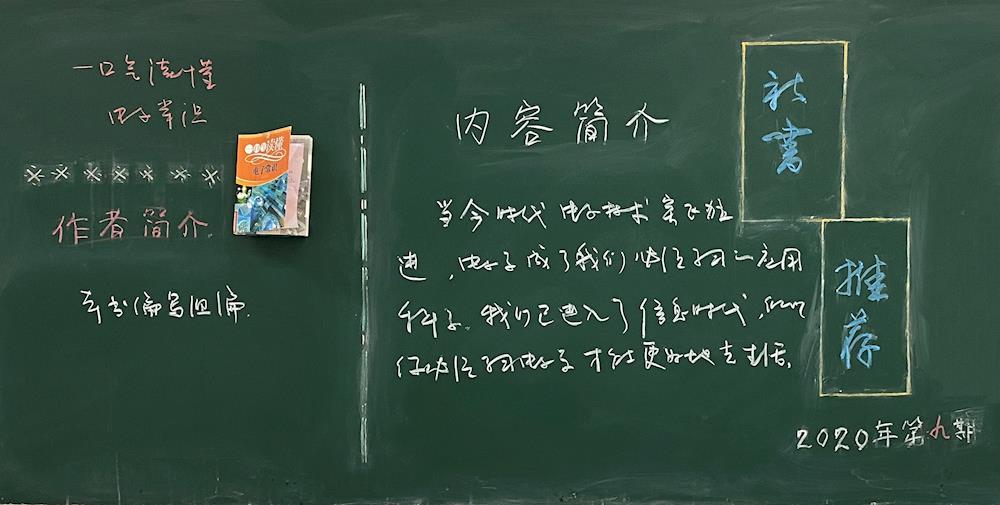 一口气读懂
电子常识
作者简介
本书编写组编
读懂
电子常识
内容简介
当今时代电子技术突飞猛
进，电子成了我们必须了解的一门应用
科学。我们已进入了信息时代，
电子才能更好地去生活。
新书
推荐
2020年第九期